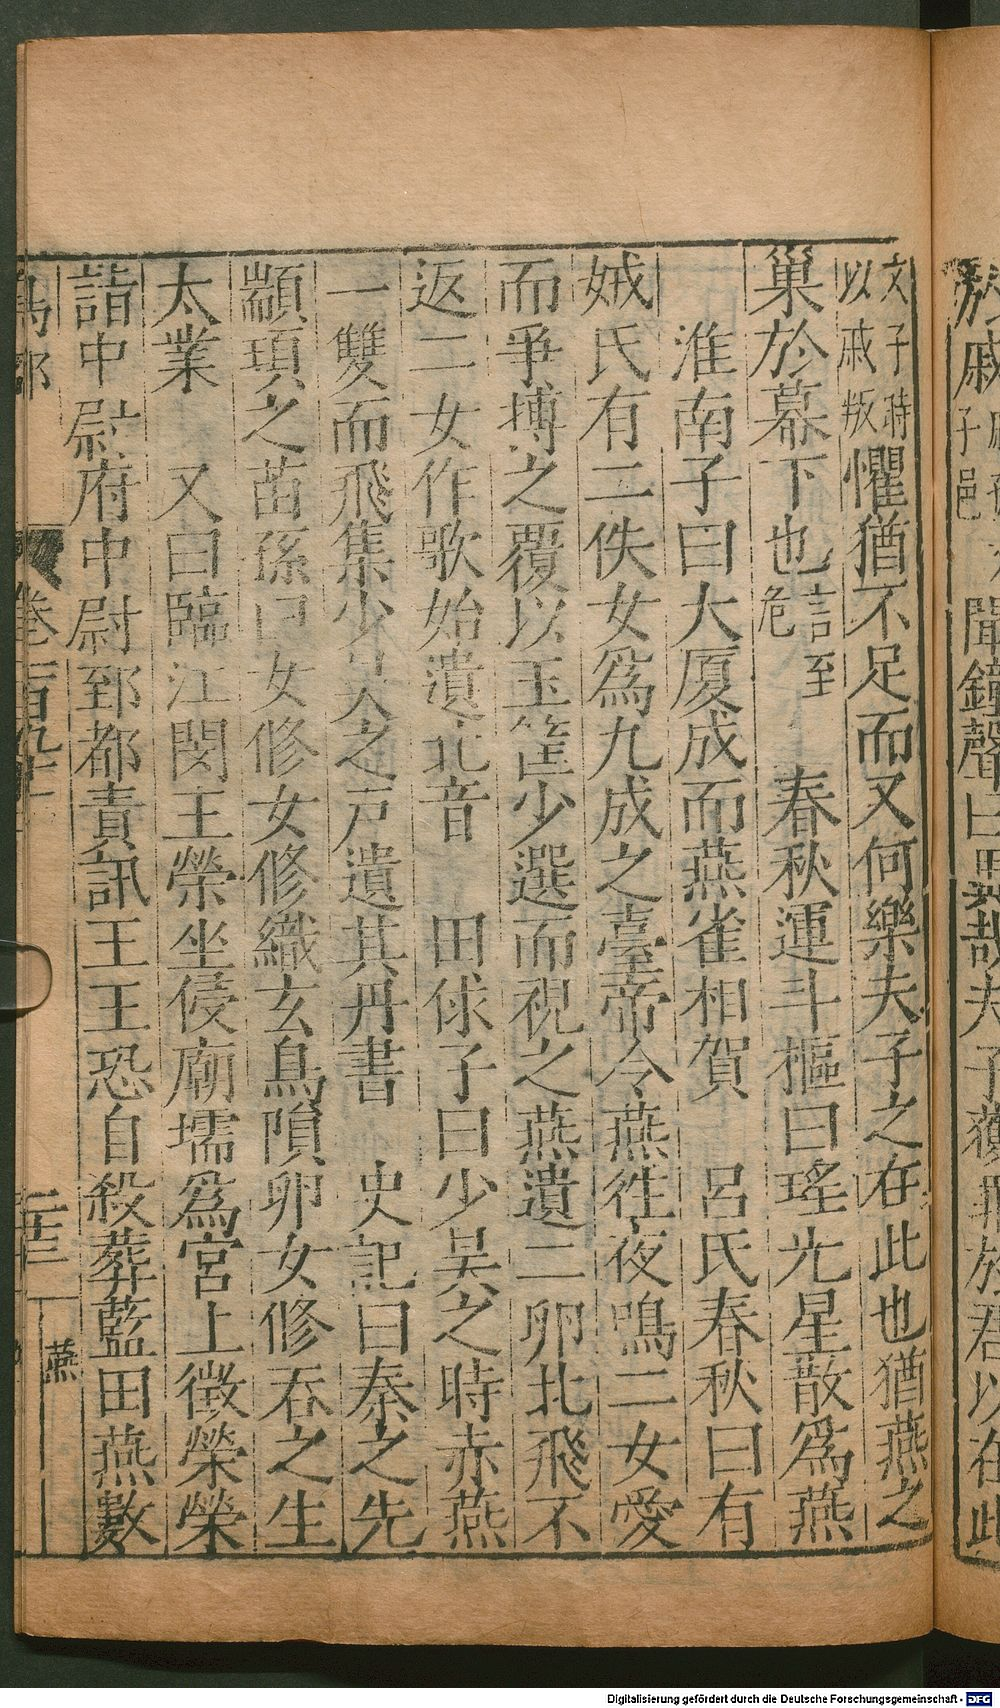 文子時以戚叛懼猶不足而又何樂夫子之在此也猶燕之
巢於幕下也言至危 春秋運斗樞曰瑤光星散為燕
淮南子曰大厦成而燕雀相賀 呂氏春秋曰有
娀氏有二佚女為九成之臺帝令燕徃夜鳴二女愛
而爭搏之覆以玉筐少選而視之燕遺二卵北飛不
返二女作歌始遺北音 田俅子曰少吴之時赤燕
一雙而飛集少吴之戸遺其丹書 史記曰秦之先
顓頊之苗孫曰女修女修織玄鳥隕卵女修吞之生
太業 又曰臨江閔王榮坐侵廟壖為宮上徴榮榮
詣中尉府中尉郅都責訊王王恐自殺葬藍田燕數
鳥部 卷 燕
戚 聞鐘聲曰異哉夫子獲罪於君以在此
子邑
Digitalisierung gefördert durch die Deutsche Forschungsgemeinschaft - DFG